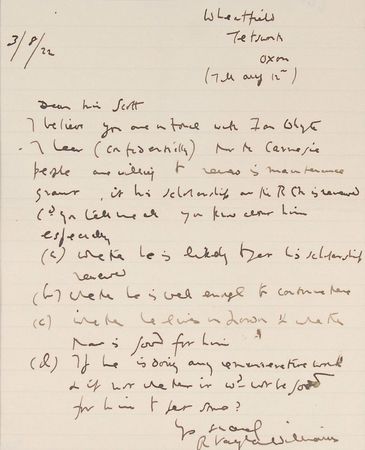 Wheatfield
Tetsworth
Oxon
3/8/22
(Till Aug 12th)
Dear Miss Scott
I believe you are in touch with Ian Whyte
I hear (confidentially) that the Carnegie
people are willing to renew his maintenance
grant, if his scholarship at the RCM is renewed
Cd you tell me all you know about him
especially
(a) whether he is likely to get his scholarship
renewed
(b) whether he is well enough to continue there
(c) whether he lives in London & whether
that is good for him
(d) If he is doing any remunerative work
& if not whether it wd not be good
for him to get some?
Yrs sincerely
R Vaughan Williams